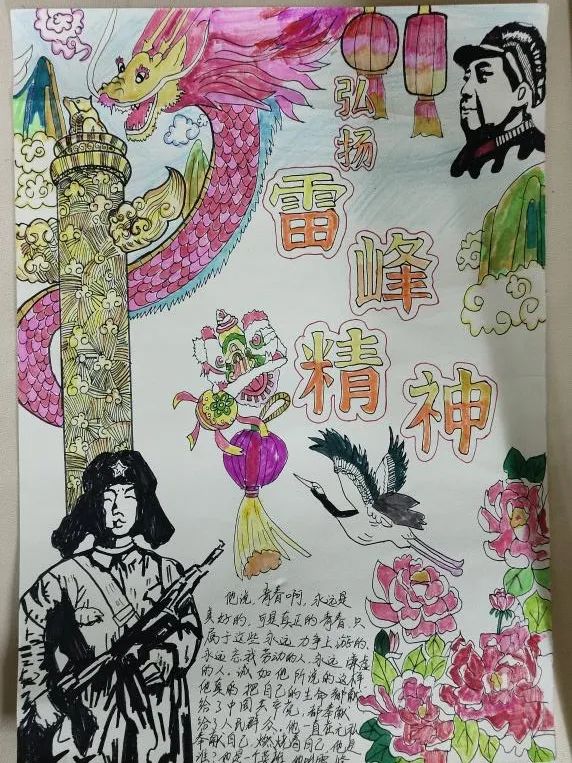 弘扬
雷
峰
精
神
他说,青春啊,永远是
美好的,可是真正的青春,只
属于这些永远力争上游的,
永远忘我劳动的人,永远谦虚
的人,诚如他所说的这样
他真的把自己的生命都献
给了中国共产党,都奉献
给了人民群众,他一直在无私
奉献自己,燃烧着自己,他是
谁?他是一个英雄,他叫雷锋